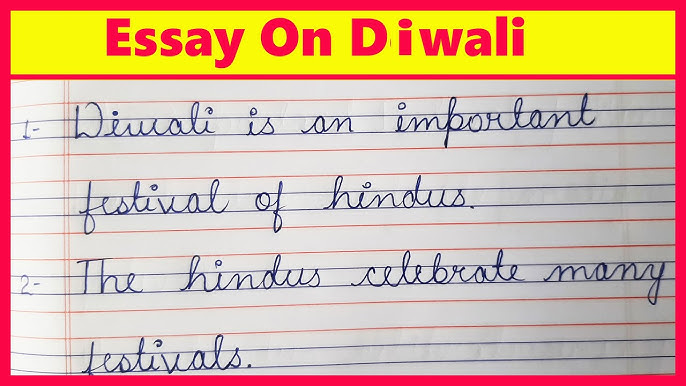 Essay On Diwali
1- Diwali is an important
festival of hindus.
2- The hindus celebrate many
festivals.